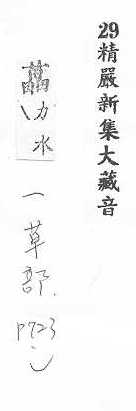 29精嚴新集大藏音
力水
一草部.
P723